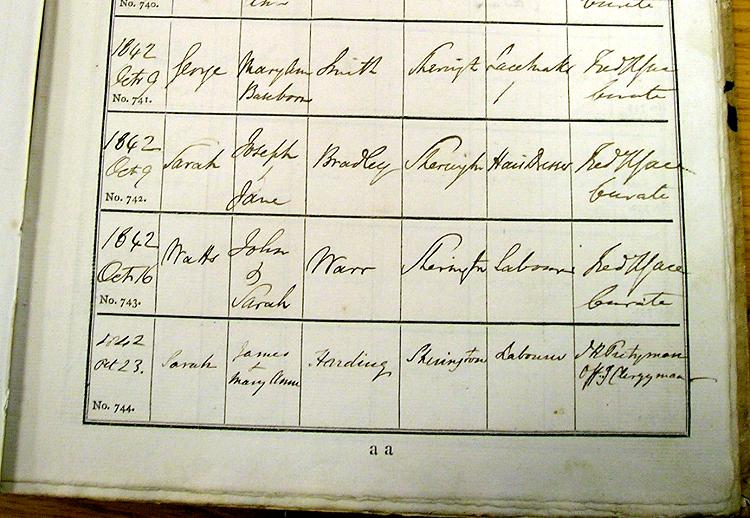 No. 740.
Curate
1842
Octr 9
No. 741.
George
Mary Ann
Baseborn
Smith
Sherington
Lacemaker
Curate
1842
Oct 9
No. 742.
Sarah
Joseph
Jane
Bradley
Sherington
Hair Dresser
Curate
1842
Oct 16
No. 743.
Watts
John
&
Sarah
Warr
Sherington
Labourer
Curate
1842
Oct 23.
No. 744.
Sarah
James
+
Mary Ann
Harding
Sherington
Labourer
Pretyman
Offg Clergyman
a a